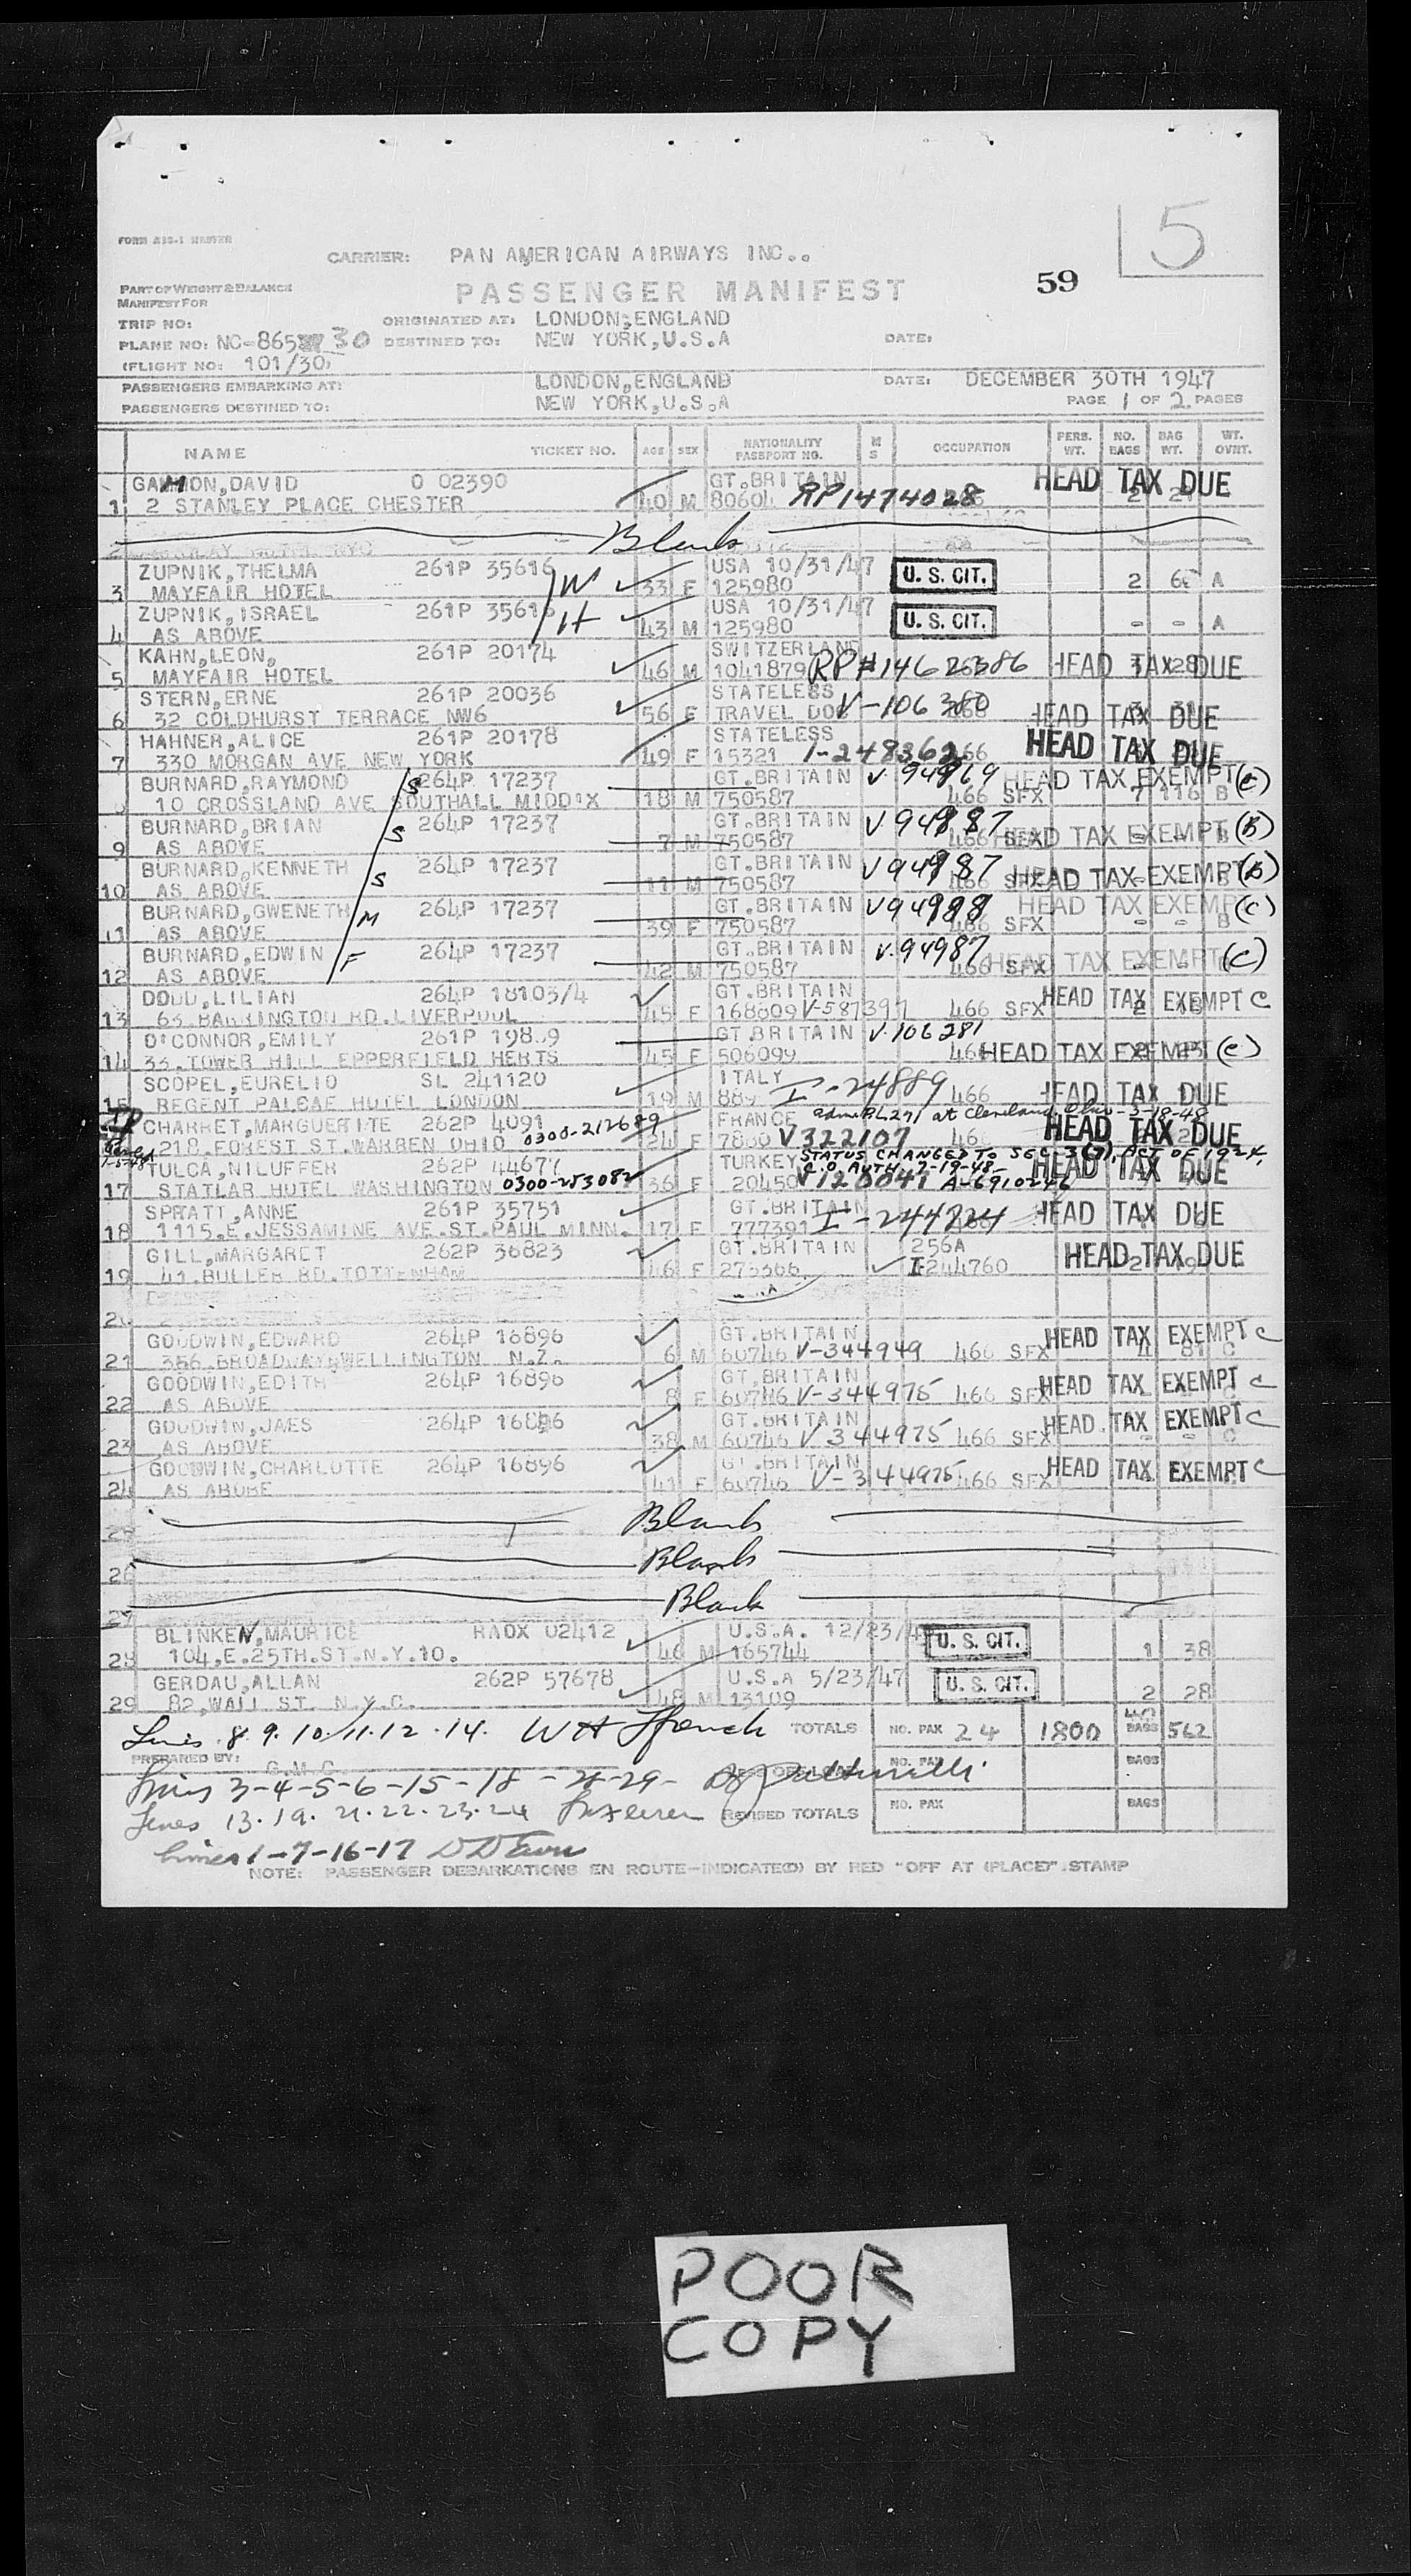 5
FORM
CARRIER: PAN AMERICAN AIRWAYS INC..
59
PART OF WEIGHT & BALANCE
MANIFEST FOR
PASSENGER MANIFEST
TRIP NO: ORIGINATED AT: LONDON,ENGLAND
PLANE NO: NC-865 30 DESTINED TO: NEW YORK,U.S.A DATE:
(FLIGHT NO: 101/30)
PASSENGERS EMBARKING AT: LONDON,ENGLAND DATE: DECEMBER 30TH 1947
PASSENGERS DESTINED TO: NEW YORK,U.S.A PAGE 1 OF 2 PAGES
NAME TICKET NO. AGE SEX NATIONALITY PASSPORT NO. M S OCCUPATION PERS. WT. NO. BAGS BAG WT. WT. OVNT.
GAMMON,DAVID 0 02390 GT.BRITAIN HEAD TAX DUE
1 2 STANLEY PLACE CHESTER 40 M 80604 RP1474028
2 Blank
ZUPNIK,THELMA 261P 35616 W USA 10/31/47 U. S. CIT.
3 MAYFAIR HOTEL 33 F 125980 2 A
ZUPNIK,ISRAEL 261P 35616 H USA 10/31/47 U. S. CIT.
4 AS ABOVE 43 M 125980 - - A
KAHN,LEON, 261P 20174 SWITZERLAND
5 MAYFAIR HOTEL 46 M 1041879 RP#146 HEAD TAX DUE
STERN,ERNE 261P 20036 STATELESS
6 32 COLDHURST TERRACE NW6 56 F TRAVEL DOC V-106380 HEAD TAX DUE
HAHNER,ALICE 261P 20178 STATELESS
7 330 MORGAN AVE NEW YORK 49 F 15321 I-248362 HEAD TAX DUE
BURNARD,RAYMOND S 264P 17237 GT.BRITAIN V HEAD TAX EXEMPT (c)
10 CROSSLAND AVE SOUTHALL MIDD'X 18 M 750587 466 SFX 7 116 B
BURNARD,BRIAN S 264P 17237 GT.BRITAIN V HEAD TAX EXEMPT (b)
9 AS ABOVE 7 M 750587 466
BURNARD,KENNETH S 264P 17237 GT.BRITAIN V HEAD TAX EXEMPT (b)
10 AS ABOVE 11 M 750587 466
BURNARD,GWENETH M 264P 17237 GT.BRITAIN V HEAD TAX EXEMPT (c)
11 AS ABOVE 39 F 750587 466 SFX - - B
BURNARD,EDWIN F 264P 17237 GT.BRITAIN V.94987 HEAD TAX EXEMPT (c)
12 AS ABOVE 42 M 750587 466 SFX
DODD,LILIAN 264P 18103/4 GT.BRITAIN HEAD TAX EXEMPT C
13 63.BARRINGTON RD.LIVERPOOL 45 F 168609 V-587397 466 SFX
O'CONNOR,EMILY 261P GT.BRITAIN V.106281
14 33.TOWER HILL EPPERFIELD HERTS 45 F 506099 HEAD TAX EXEMPT (c)
SCOPEL,EURELIO SL 241120 ITALY
15 REGENT PALCAE HOTEL LONDON 19 M 889 I-24889 466 HEAD TAX DUE
CHARRET,MARGUERITE 262P 4091 0300-212689 FRANCE adm. P.L.271 at Cleveland, Ohio - 3-18-48
218.FOREST ST.WARREN OHIO 24 F V322107 HEAD TAX DUE
TULCA,NILUFFER 262P 44677 TURKEY STATUS CHANGED TO SEC. 3(7), ACT OF 1924,
C.O. AUTH. 7-19-48
17 STATLAR HOTEL WASHINGTON 0300-253082 36 F 20450 V128041 A-6910246 HEAD TAX DUE
SPRATT,ANNE 261P 35751 GT.BRITAIN
18 1115.E.JESSAMINE AVE.ST.PAUL MINN. 17 F 777391 I-244724 HEAD TAX DUE
GILL,MARGARET 262P 36823 GT.BRITAIN 256A
19 41.BULLER RD.TOTTENHAM 46 F 273366 I-244760 HEAD TAX DUE
20
GOODWIN,EDWARD 264P 16896 GT.BRITAIN HEAD TAX EXEMPT C
21 356.BROADWAY,WELLINGTON N.Z. 6 M 60746 V-344949 466 SFX 4 81 C
GOODWIN,EDITH 264P 16896 GT.BRITAIN HEAD TAX EXEMPT C
22 AS ABOVE 8 F 60746 V-344975 466 SFX
GOODWIN,JAES 264P 16896 GT.BRITAIN HEAD TAX EXEMPT C
23 AS ABOVE 38 M 60746 V 344975 466 SFX - - C
GOODWIN,CHARLOTTE 264P 16896 GT.BRITAIN HEAD TAX EXEMPT C
24 AS ABOBE 41 F 60746 V-344975 466 SFX
25 Blank
26 Blank
27 Blank
BLINKEN,MAURICE RADX 02412 U.S.A. 12/23/4 U. S. CIT.
28 104.E.25TH.ST.N.Y.10. 46 M 165744 1 38
GERDAU,ALLAN 262P 57678 U.S.A 5/23/47 U. S. CIT.
29 82,WALL ST. N.Y.C. 48 M 13109 2 28
Lines 8. 9. 10. 11. 12. 14. TOTALS NO. PAX 24 1800 BAGS 562
PREPARED BY: G.M.C. NO. PAX BAGS
Lines 3-4-5-6-15-18
Lines 13. 19. 21. 22. 23. 24 REVISED TOTALS NO. PAX BAGS
Lines 1-7-16-17
NOTE: PASSENGER DEBARKATIONS EN ROUTE-INDICATE(D) BY RED "OFF AT (PLACE)".STAMP
POOR
COPY